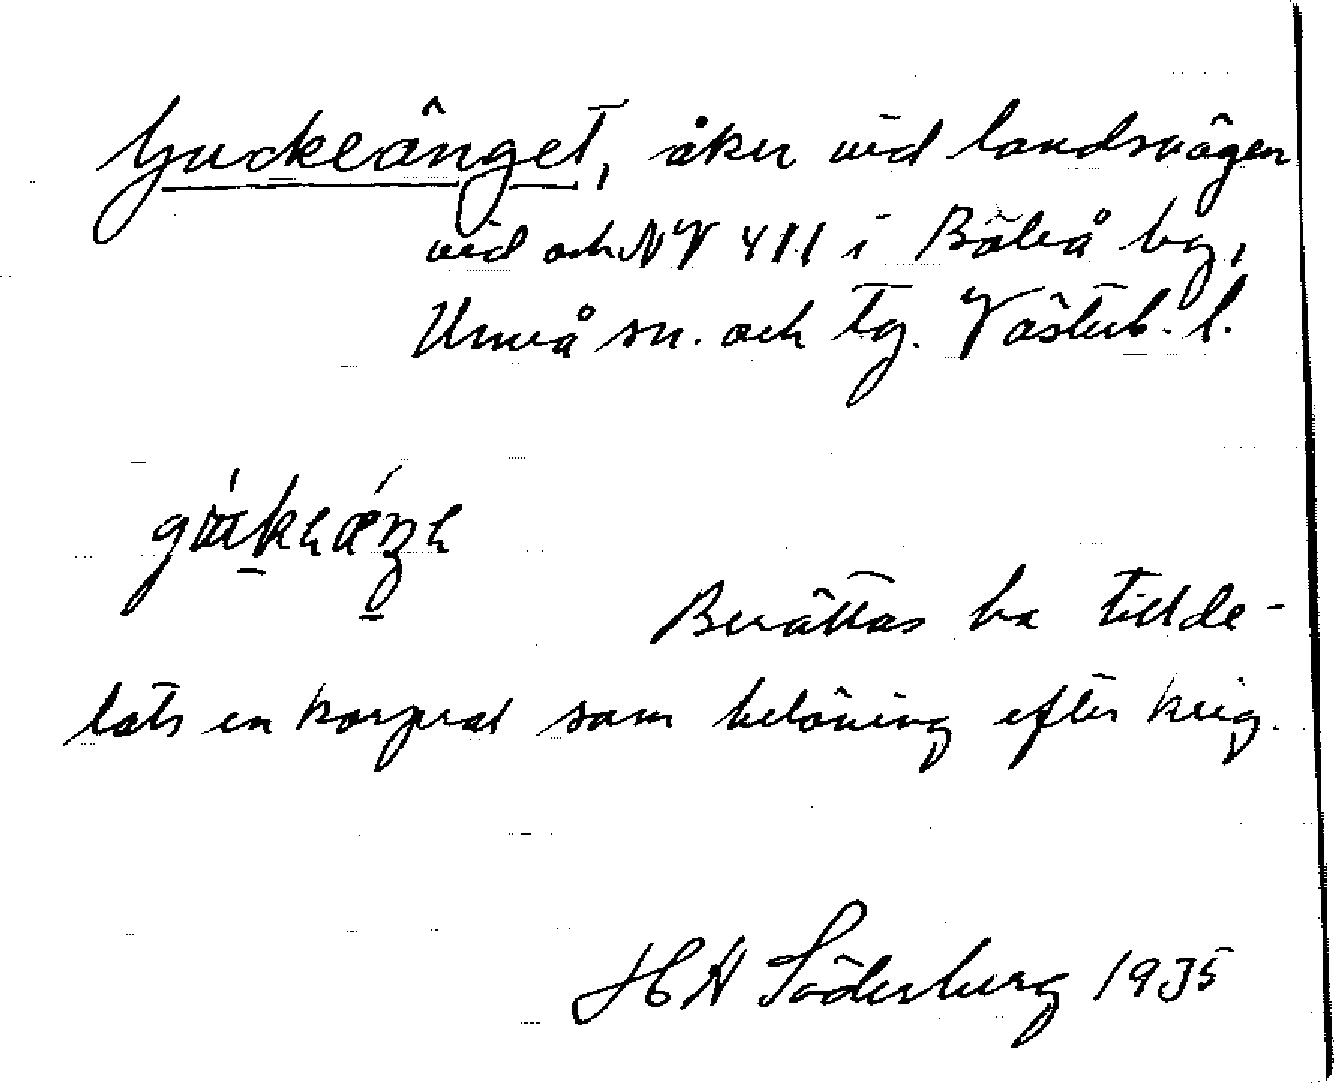 Guckeänget, åker vid landsvägen
vid och NV 411 i Böleå by,
Umeå sn. och tg. Västerb. l.
Berättas ha tillde-
lats en korpral som belöning efter krig.
H A Söderberg 1935